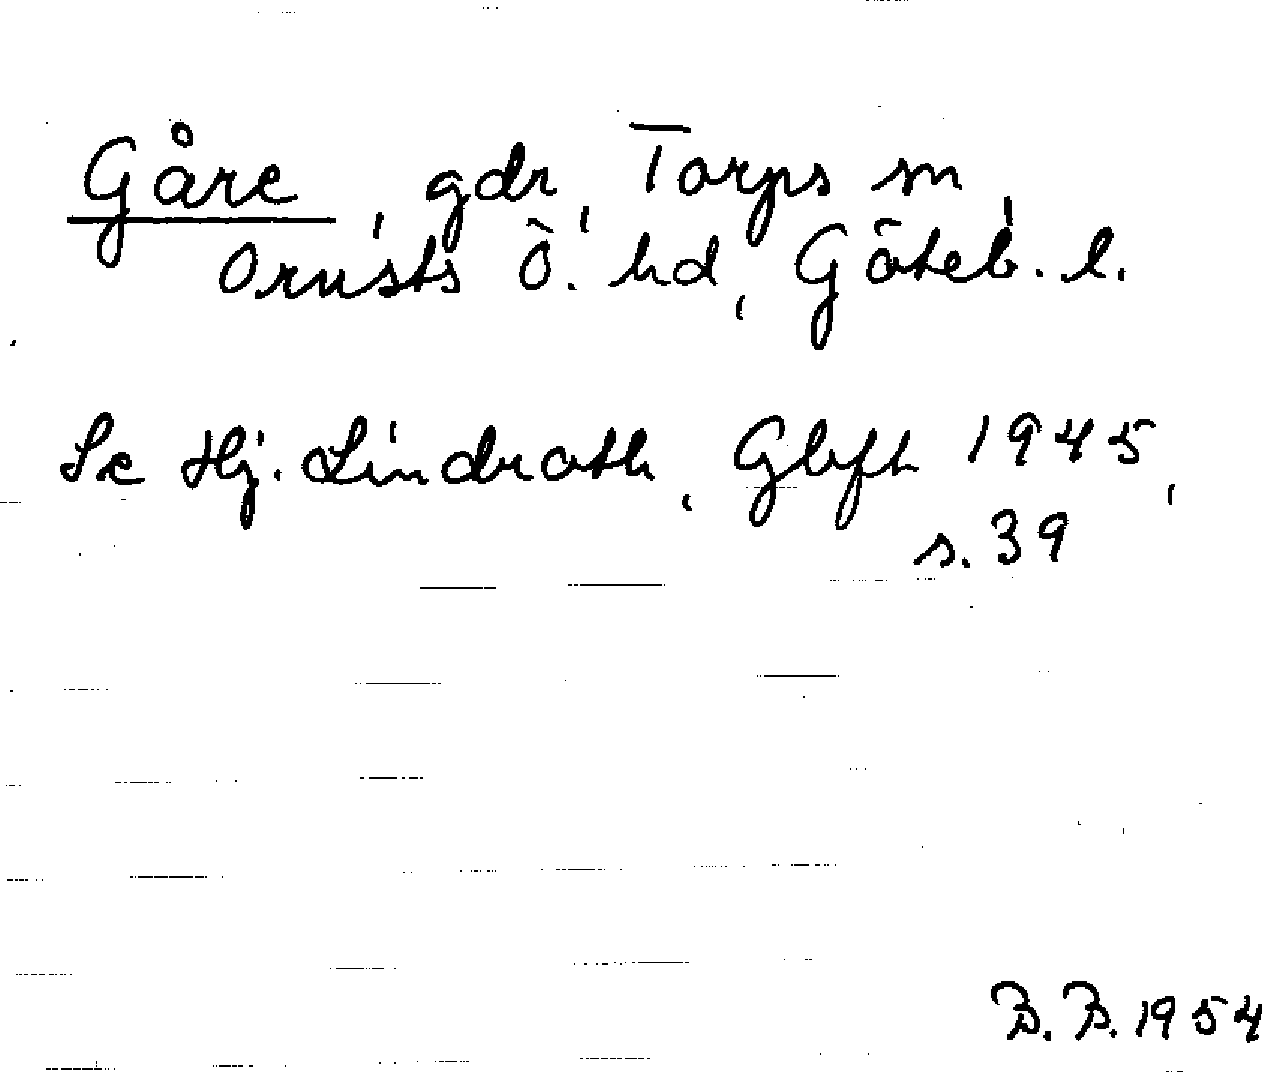 Gåre, gdr, Torps sn,
Orusts Ö. hd, Göteb. l.
Se Hj. Lindroth, Gbft 1945,
s. 39
B. B. 1954